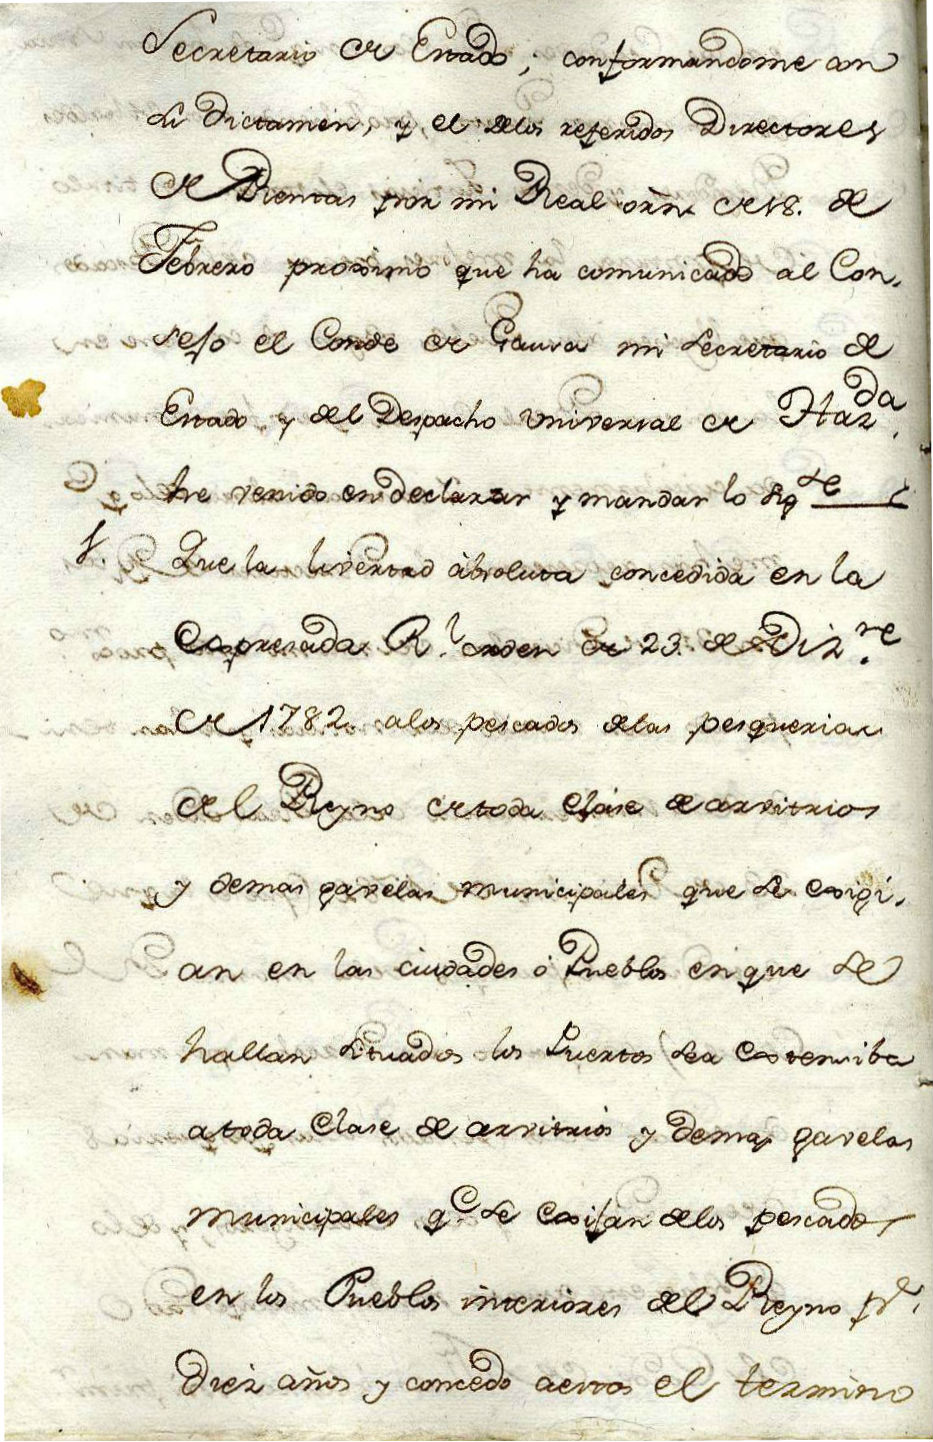 Secretario de Estado; conformandome con
su dictamen, y el delos referidos Directores
de Rentas por mi Real orñ. de 18. de
Febrero proximo que ha comunicado al Con-
sejo el Conde de Gausa mi Secretario de
Estado y del Despacho Universal de Haz.da
he venido en declarar y mandar lo sig.te
1. Que la livertad absoluta concedida en la
Expresada R.l orden de 23. de Diz.re
de 1782. alos pescados delas pesquerias
del Reyno de toda clase de arvitrios
y demas gavelas municipales que se exigi-
an en las ciudades ó Pueblos en que se
hallan situados los Puertos sea extensiba
a toda Clase de arvitrios y demas gavelas
municipales q.e se exijan delos pescados
en los Pueblos interiores del Reyno pr.
diez años y concedo aestos el termino